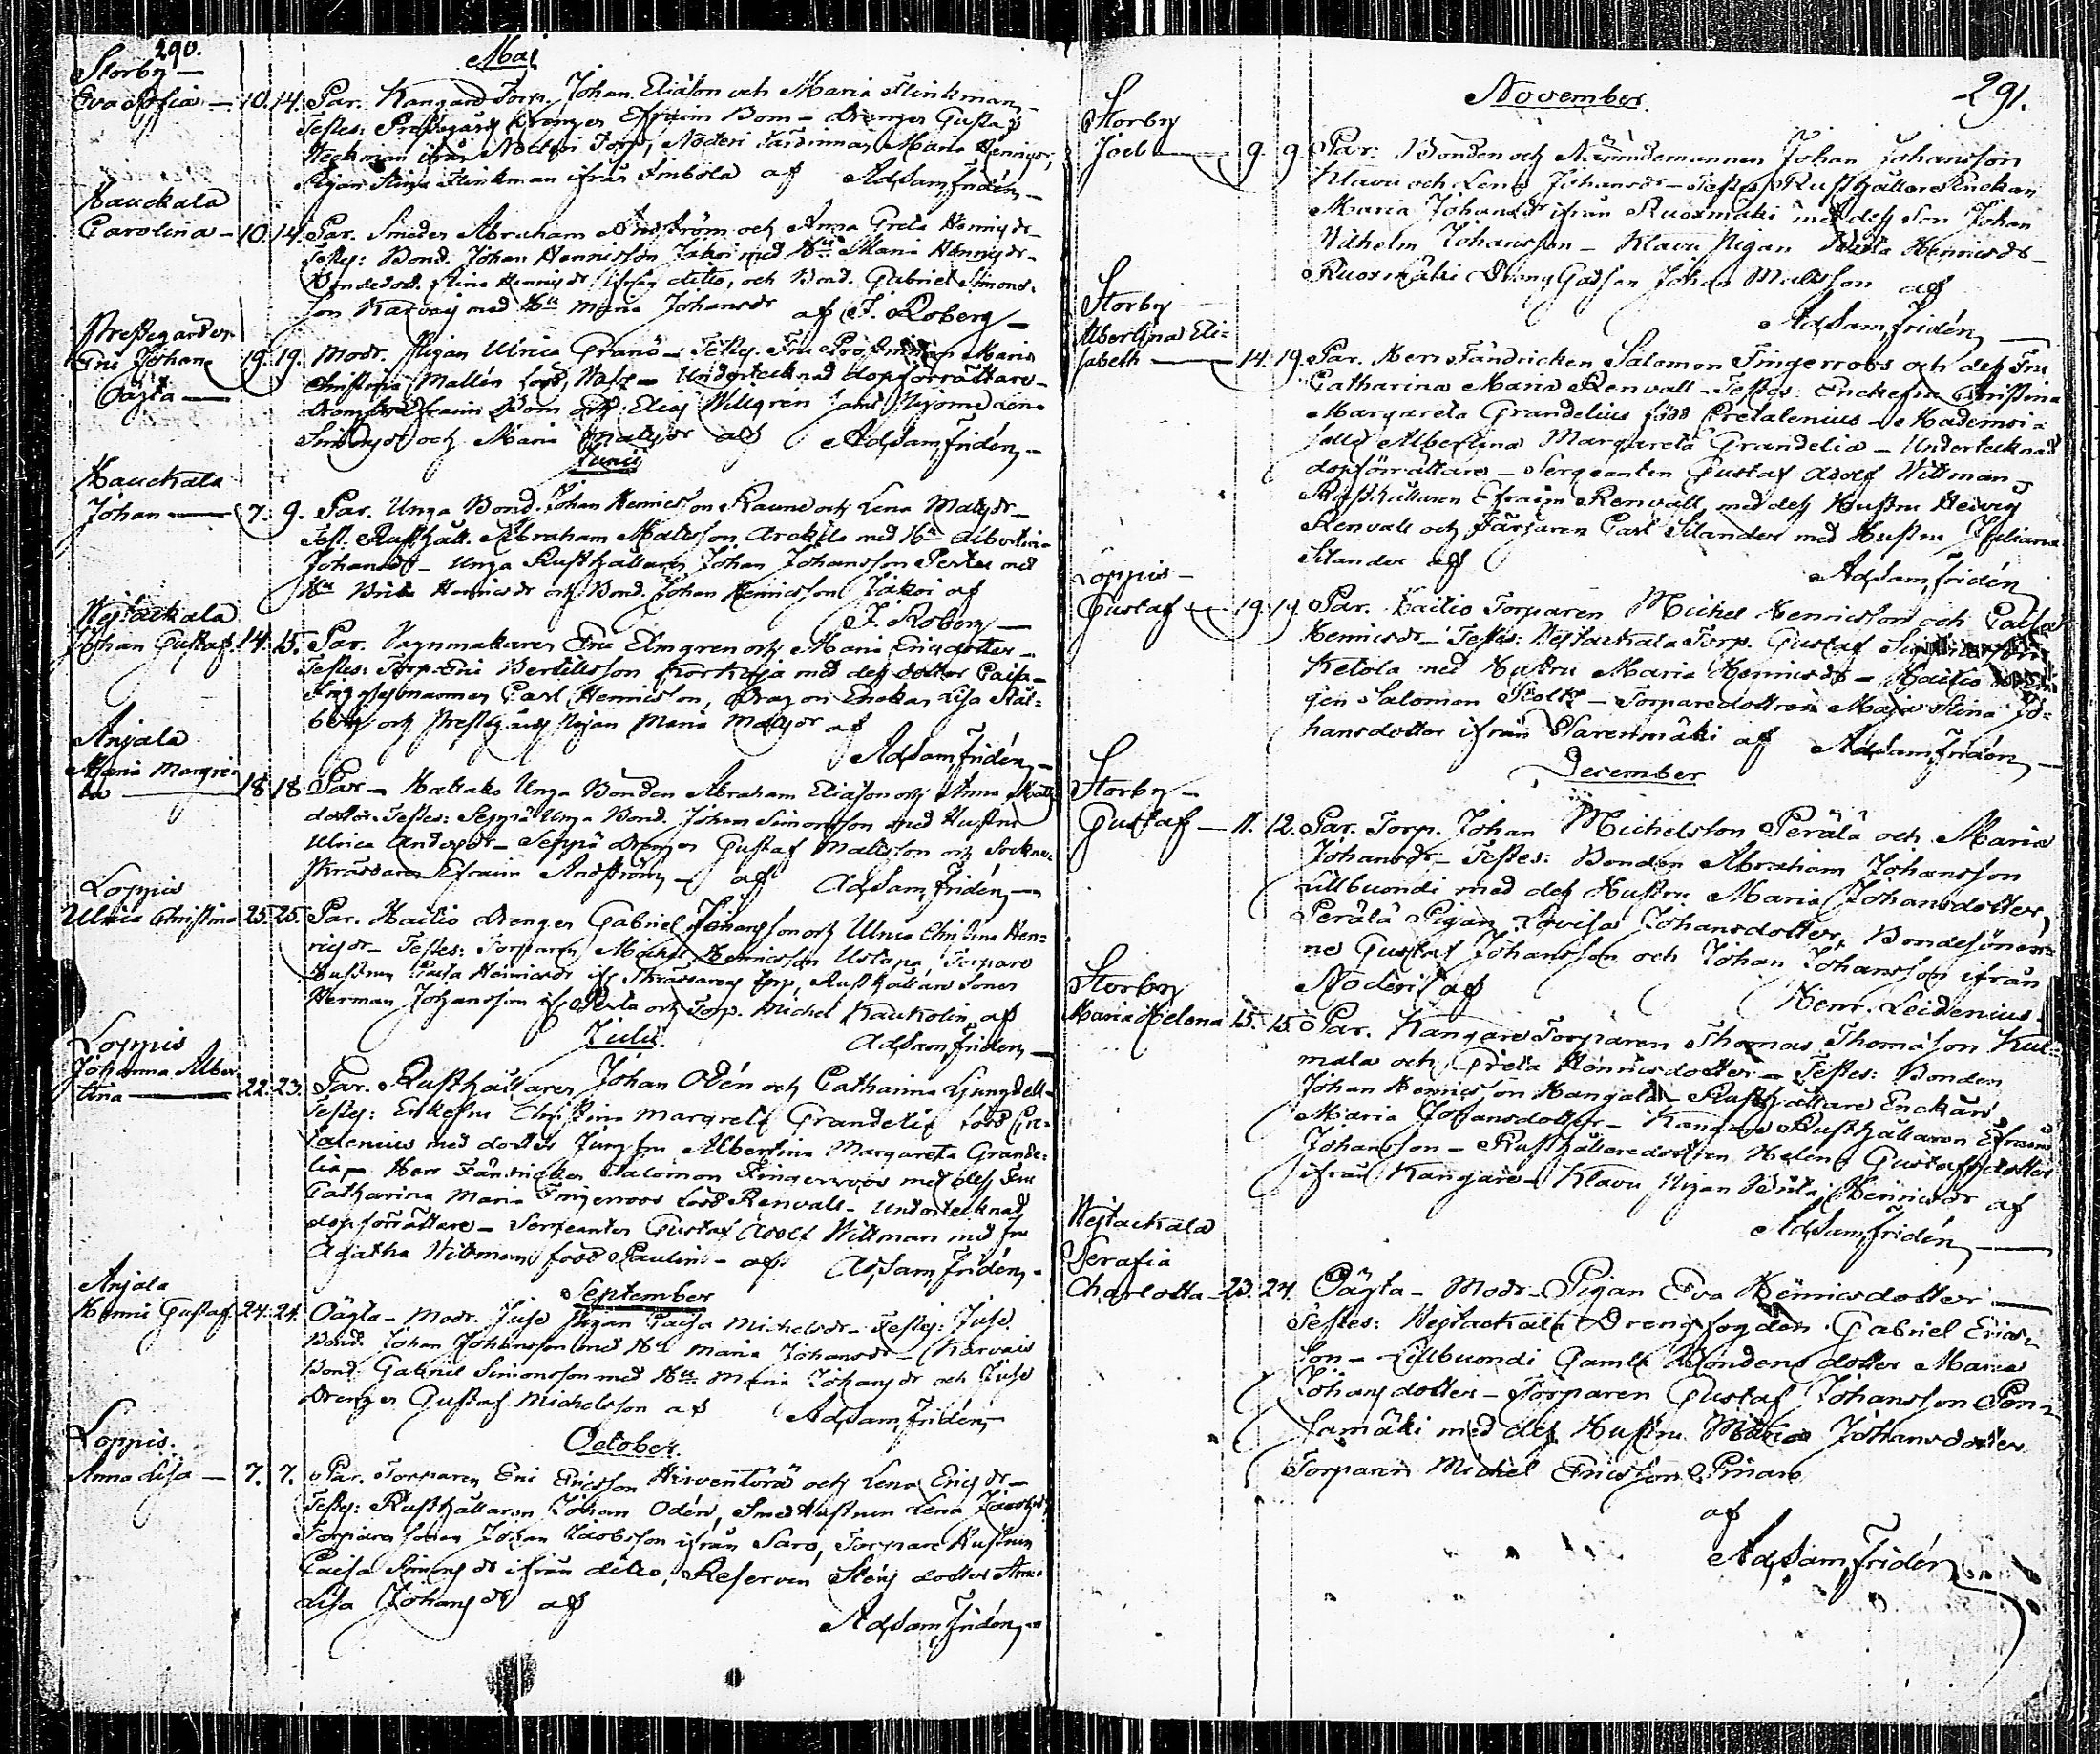 290.
Maj
Storby —
Eva Sofia — 10. 14. Par. Kangare Torp. Johan Eliäson och Maria Flinkman,
Testes: Prestegårds Drengen Efraim Bom — Drengen Gustaf
Heckman ifrån Torp, Noderi Maria
Pigan Stina Flinkman ifrån af AdSamFridén —
Hauckala
Carolina — 10. 14. Par. Smeden Abraham och Anna Greta Henrigsdr —
Testes: Bond. Johan Henricsson Jakoi med Hu Maria Henrigsdr —
Stina Henrigsdr ifrån ditto, och Bond. Gabriel Simons-
son Karvais med Hu Maria Johansdr af J. Roberg —
Prestegården
Johan 19. 19. Modr. Pigan Ulrica Granö — Testes. Fru Maria
Oägta — Christina Mallén född, — Undertecknad dopförrättare —
Efraim Bom och Elias Willgren samt
och Maria Matsdr af AdSamFridén —
Junii
Hauckala
Johan — 7. 9. Par. Unga Bond. Johan Henricsson Raune och Lena Matsdr —
Test. Rusthåll. Abraham Mattsson med Hu
Johansdr — Unga Rusthållaren Johan Johansson Perta med
Hu Brita Henricsdr och Bond. Johan Henricsson Jakoi af
J. Roberg —
Wejlackala
Johan Gustaf. 14. 15. Par. Vagnmakaren Elmgren och Maria Ericsdotter —
Testes: Torp. Bertillsson med des dotter Caisa —
Carl Henricsson, Dragon Enckan Lisa Stål-
berg och Prestegårds Pigan Maria Matsdr af
AdSamFridén —
Anjala
Maria Margre-
ta — 18. 18. Par — Unga Bonden Abraham Eliasson och Anna Matts
dotter. Testes: Seppä Unga Bond. Johan Simonsson med Hustru
Ulrica Andersdr — Seppä Drengen Gustaf Mattsson och Sockne-
Skräddaren Efraim Andström — af AdSamFridén —
Loppis
Ulrica Christina 25. 25. Par. Hailio Drengen Gabriel Johansson och Ulrica Christina Hen-
ricsdr — Testes: Torparen Michel Henricsson Torpare
Hustrun Caisa Henricsdr ifr. Skräddarens torp, Rusthållare Sonen
Herman Johansson ifr. Perta och Torp. Michel Kaukolin af
AdSamFridén —
Julii.
Loppis
Johanna Alber-
tina — 22. 23. Par. Rusthållaren Johan Odén och Catharina Ljungdell —
Testes: Enkefru Christina Margreta Grandelia född Cre-
talenius med dotter Jungfru Albertina Margareta Grande-
lia — Herr Fändricken Salomon Fingerroos med des Fru
Catharina Maria Fingerroos född Renvall — Undertecknad
dopförrättare — Sergeanten Gustaf Adolf Wittman med Fru
Agatha Wittman född Paulin — af AdSamFridén —
September
Anjala
Henric Gustaf. 24. 24. Oägta — Modr. Juse Pigan Caisa Michelsdr — Testes: Juse
Bond. Johan Johansson med Hu Maria Johansdr — Karvais
Bond. Gabriel Simonsson med Hu Maria Johansdr och Juse
Drengen Gustaf Michelsson af AdSamFridén —
October.
Loppis.
Anna Lisa — 7. 7. Par. Torparen Eric Ericsson Hirventörä och Lena Ericsdr —
Testes: Rusthållaren Johan Odén, Smed Hustrun Lena
Torpare Sonen Johan Jacobsson ifrån Saro, Torpare Hustrun
Caisa Simonsdr ifrån ditto, Reserven Stens dotter Anna
Lisa Johansdr af AdSamFridén —
291.
November.
Storby
Joel — 9. 9. Par. Bonden och Nämndemannen Johan Johansson
Klavu och Lena Johansdr — Testes: Rusthållare Enckan
Maria Johansdr ifrån Ruosmäki med des Son Johan
Wilhelm Johansson — Klavu Pigan Brita Henricsdr —
Ruosmäki Dreng Gossen Johan Mattsson af
AdSamFridén —
Storby
Albertina Eli-
sabeth — 14. 19. Par. Herr Fändricken Salomon Fingerroos och des Fru
Catharina Maria Renvall — Testes: Enckefru Christina
Margareta Grandelius född Cretalenius — Mademoi-
selle Albertina Margareta Grandelia — Undertecknad
dopförrättare — Sergeanten Gustaf Adolf Wittman,
Rusthållaren Efraim Renvall med des Hustru Hedvig
Renvall och Färgaren Carl Silander med Hustru Juliana
Silander af AdSamFridén
Loppis —
Gustaf — 19. 19. Par. Hailio Torparen Michel Henricsson och Caisa
Henricsdr — Testes: Wejlackala Torp. Gustaf
Ketola med Hustru Maria Henricsdr — Hailio
gen Salomon Stolts — Torparedottren Maja Stina Jo-
hansdotter ifrån Varenmäki af AdSamFridén —
December
Storby —
Gustaf — 11. 12. Par. Torp. Johan Michelsson Perälä och Maria
Johansdr — Testes: Bonden Abraham Johansson
Lillbuondi med des Hustru Maria Johansdotter,
Perälä Pigan Lovisa Johansdotter, Bondesöner-
ne Gustaf Johansson och Johan Johansson ifrån
Noderi af Henr. Leidenius.
Storby
Maria Helena 15. 15. Par. Kangare Torparen Thomas Thomasson Kul-
mala och Greta Henricsdotter — Testes: Bonden
Johan Henricsson Hangala — Rusthållare Enckan
Maria Johansdotter — Kangare Rusthållaren Efraim
Johansson — Rusthållaredottren Helena Gustafsdotter
ifrån Kangare — Klavu Pigan Brita Henricsdr af
AdSamFridén —
Wejlackala
Serafia
Charlotta — 23. 24. Oägta — Modr — Pigan Eva Henricsdotter —
Testes: Wejlackala Drengsfogden Gabriel Erics-
son — Lillbuondi Gamla Bondens dotter Maria
Johansdotter — Torparen Gustaf Johansson Pon-
samäki med des Hustru Maria Johansdotter
Torparen Michel Ericsson
af
AdSamFridén